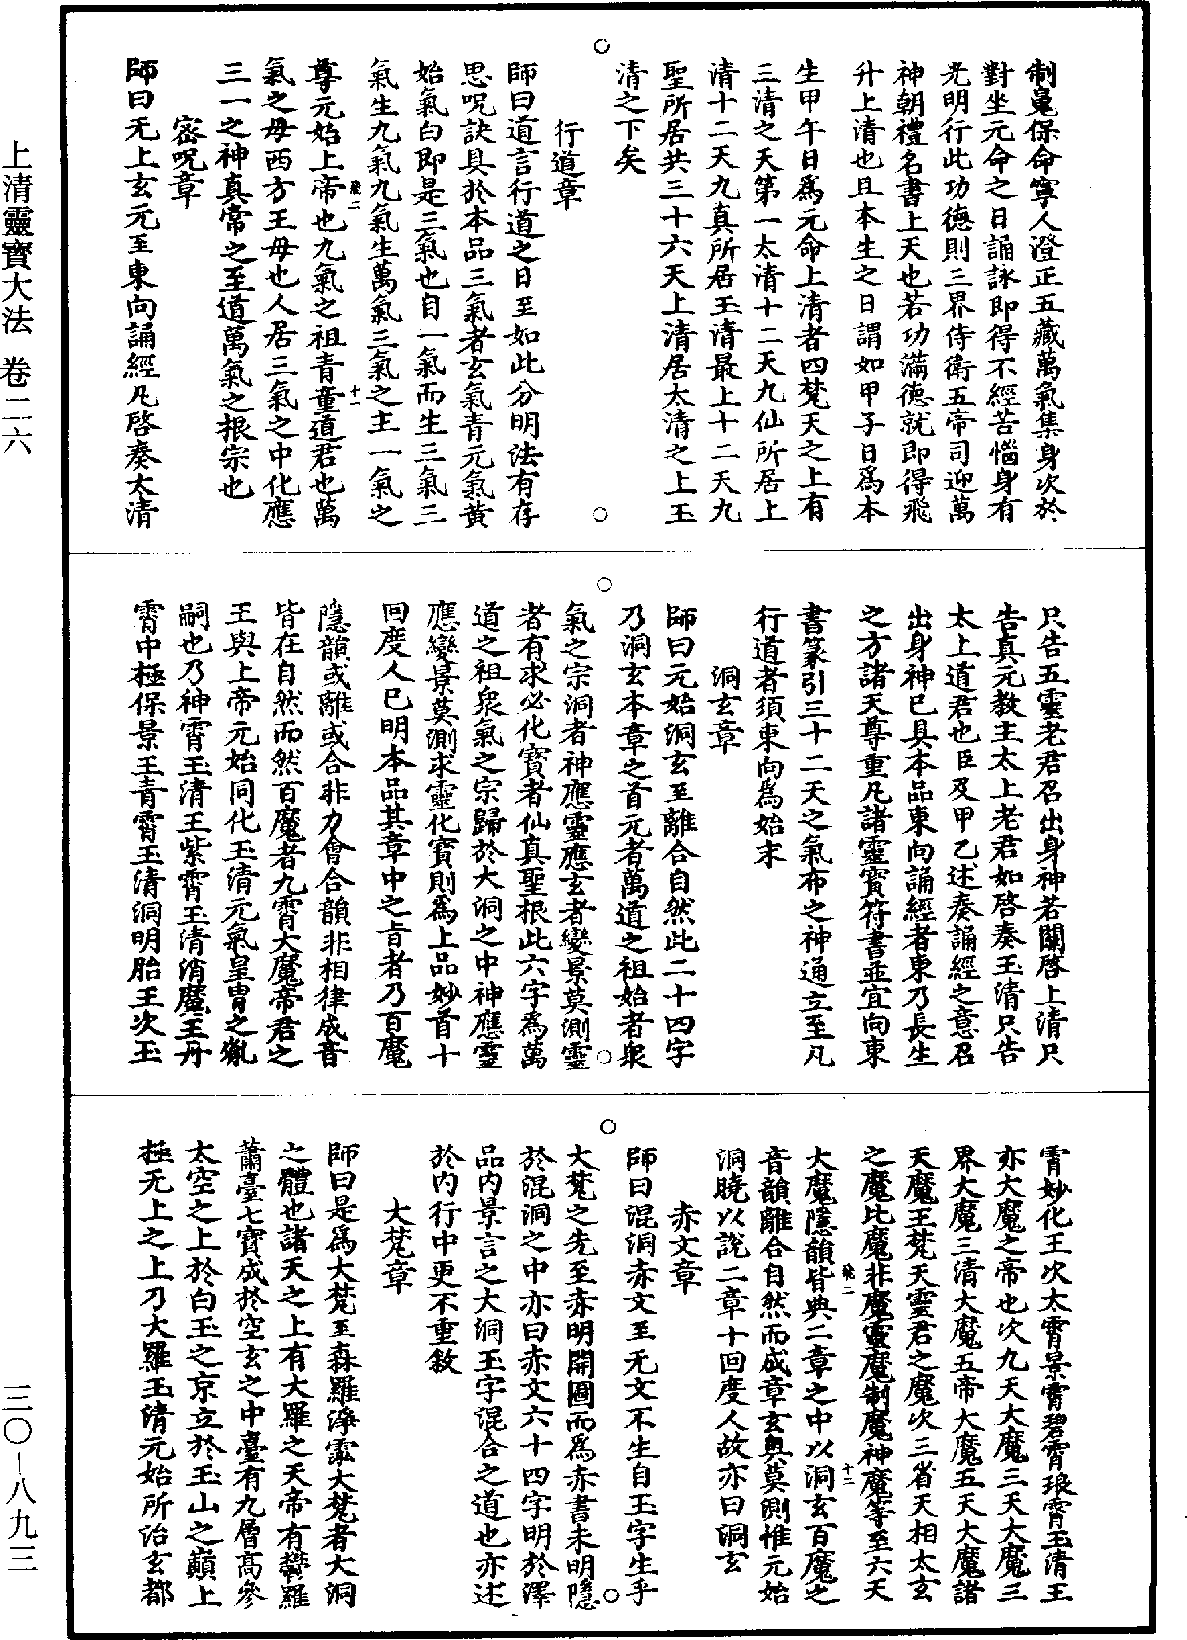 上清靈寶大法 卷二六
三〇－八九三
制鬼保命寧人澄正五藏萬氣集身次於
對坐元命之日誦詠即得不經苦惱身有
光明行此功德則三界侍衛五帝司迎萬
神朝禮名書上天也若功滿德就即得飛
升上清也且本生之日謂如甲子日爲本
生甲午日爲元命上清者四梵天之上有
三清之天第一太清十二天九仙所居上
清十二天九真所居玉清最上十二天九
聖所居共三十六天上清居太清之上玉
清之下矣
行道章
師曰道言行道之日至如此分明法有存
思呪訣具於本品三氣者玄氣青元氣黃
始氣白即是三氣也自一氣而生三氣三
氣生九氣九氣生萬氣三氣之主一氣之
尊元始上帝也九氣之祖青童道君也萬
氣之母西方王母也人居三氣之中化應
三一之神真常之至道萬氣之根宗也
密呪章
師曰无上玄元至東向誦經凡啓奏太清
只告五靈老君召出身神若關啓上清只
告真元教主太上老君如啓奏玉清只告
太上道君也臣及甲乙述奏誦經之意召
出身神已具本品東向誦經者東乃長生
之方諸天尊重凡諸靈寶符書並宜向東
書篆引三十二天之氣布之神通立至凡
行道者須東向為始末
洞玄章
師曰元始洞玄至離合自然此二十四字
乃洞玄本章之首元者萬道之祖始者衆
氣之宗洞者神應靈應玄者變景莫測靈
者有求必化寶者仙真聖根此六字為萬
道之祖衆氣之宗歸於大洞之中神應靈
應變景莫測求靈化寶則為上品妙首十
回度人已明本品其章中之旨者乃百魔
隱韻或離或合非力會合韻非相律成音
皆在自然而然百魔者九霄大魔帝君之
王與上帝元始同化玉清元氣皇胄之胤
嗣也乃神霄玉清王紫霄玉清消魔王丹
霄中極保景王青霄玉清洞明胎王次玉
霄妙化王次太霄景霄碧霄琅霄玉清王
亦大魔之帝也次九天大魔三天大魔三
界大魔三清大魔五帝大魔五天大魔諸
天魔王梵天靈君之魔次三省天相太玄
之魔比魔非魔靈魔制魔神魔等至六天
大魔隱韻皆典二章之中以洞玄百魔之
音韻離合自然而成章玄奧莫測惟元始
洞曉以說二章十回度人故亦曰洞玄
赤文章
師曰混洞赤文至无文不生自玉字生乎
大梵之先至赤明開圖而為赤書未明隱
於混洞之中亦曰赤文六十四字明於澤
品內景言之大洞玉字混合之道也亦述
於內行中更不重敘
大梵章
師曰是爲大梵至森羅淨霐大梵者大洞
之體也諸天之上有大羅之天帝有鬱羅
蕭臺七寶成於空玄之中臺有九層高參
太空之上於白玉之京立於玉山之巔上
極无上之上乃大羅玉清元始所治玄都